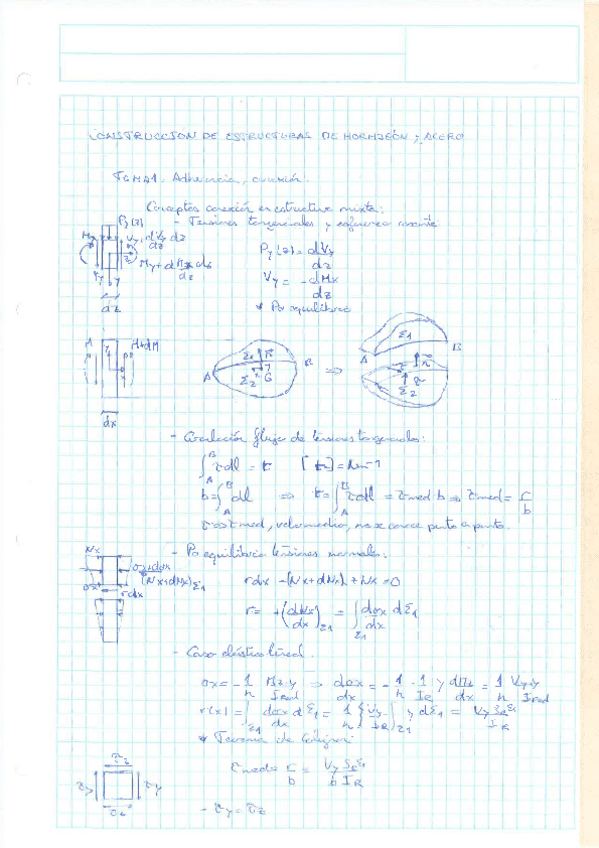 CONSTRUCCION DE ESTRUCTURAS DE HORMIGÓN y ACERO
TEMA 1. Adherencia, conexión.
Conceptos conexión en estructura mixta:
- Tensiones tangenciales y esfuerzo cortante
Py(z)
Py(z) = dVy/dz
Vy = -dMx/dz
* Por equilibrio
dz
A
M+dM
dx
A Σ1 Σ2 G B ⇒ Σ1 B A Σ2
- Circulación flujo de tensiones tangenciales:
∫_A^B τdl = r
b = ∫_A^B dl ⇒ r = ∫_A^B τdl = τmed b ⇒ τmed = r/b
τ ≡ τmed, valor medio, no se conoce punto a punto.
- Por equilibrio tensiones normales:
Nx
σx+dσx
(Nx+dNx)Σ1
σx
rdx
rdx -(Nx+dNx) + Nx = 0
r = +(dNx/dx)Σ1 = ∫Σ1 dσx/dx dΣ1
- Caso elástico lineal.
σx = -1/n Mz·y/Ired ⇒ dσx/dx = -1/n · 1/IR y dMz/dx = 1/n Vy·y/Ired
r(x) = ∫Σ1 dσx/dx dΣ1 = 1/n Vy/IR ∫Σ1 y dΣ1 = Vy SR^Σ1/IR
* Teorema de Colignon:
τmedo = r/b = Vy SR^Σ1/b IR
τz
τy τy
τz
- τy = τz